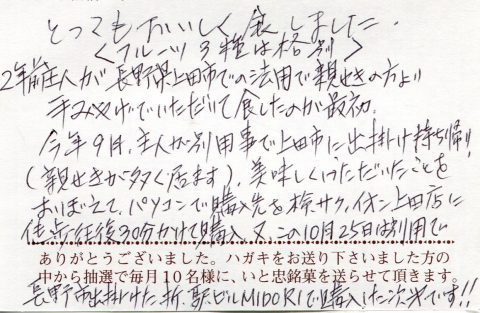 とってもおいしく食しました.
<フルーツ3種は格別>
2年前主人が長野県上田市での法用で親せきの方より
手みやげでいただいて食したのが最初.
今年9月,主人が別用事で上田市に出掛け持ち帰り
(親せきが多く居ます).美味しくいただいたことを
おぼえて.パソコンで購入先を検サク,イオン上田店に
徒歩往復30分かけて購入.又この10月25日は別用で
ありがとうございました。ハガキをお送り下さいました方の
中から抽選で毎月10名様に、いと忠銘菓を送らせて頂きます。
長野市出掛けた折.駅ビルMIDORIで購入した次第です!!